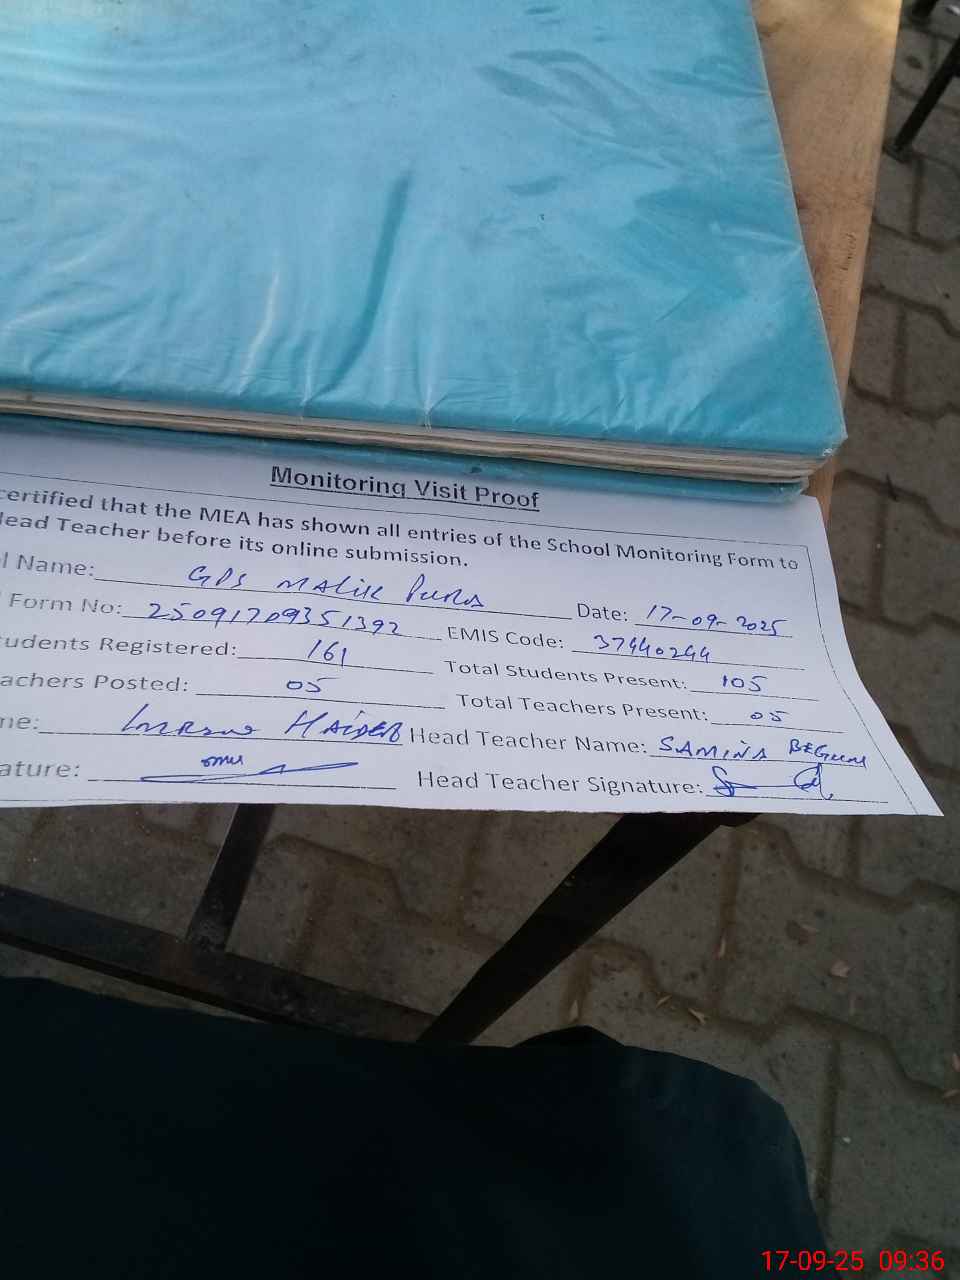 Monitoring Visit Proof
certified that the MEA has shown all entries of the School Monitoring Form to
Head Teacher before its online submission.
l Name: GPS MALIK PURA Date: 17-09-2025
Form No: 25091709351392 EMIS Code: 37440244
tudents Registered: 161 Total Students Present: 105
achers Posted: 05 Total Teachers Present: 05
me: HAIDER Head Teacher Name: SAMINA BEGUM
ature: Head Teacher Signature:
17-09-25 09:36